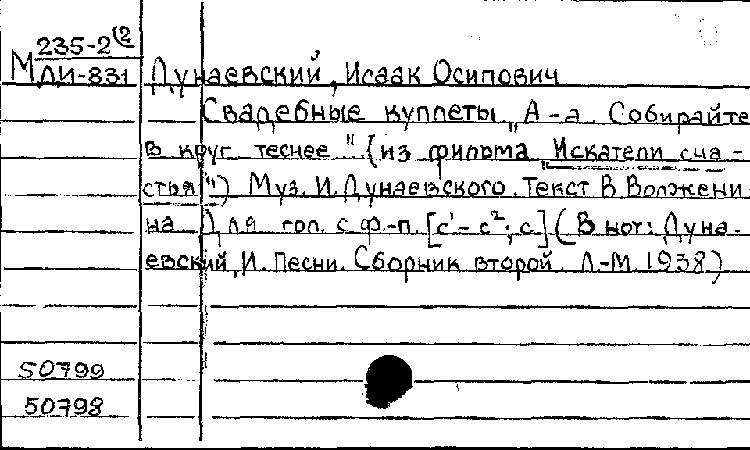 М 235-2(2
ЛИ-831 Дунаевский, Исаак Осипович
Свадебные куплеты „А-а. Собирайте
в круг теснее" (из фильма „Искатели сча-
стья") Муз. И. Дунаевского. Текст В. Волжени-
на Для гол. с ф-п. [c'-c²; c] (В нот: Дуна-
евский, И. Песни. Сборник второй. Л-М. 1938)
50799
50798